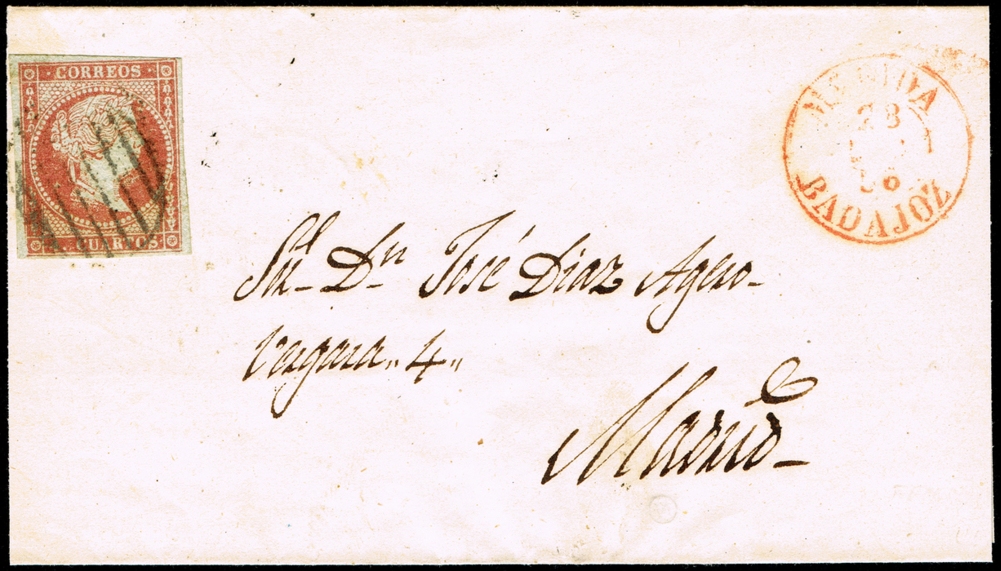 CORREOS
CUARTOS
MERIDA
28
BADAJOZ
Sr. Dn José Diaz Agero-
Vergara „ 4 „
Madrid-